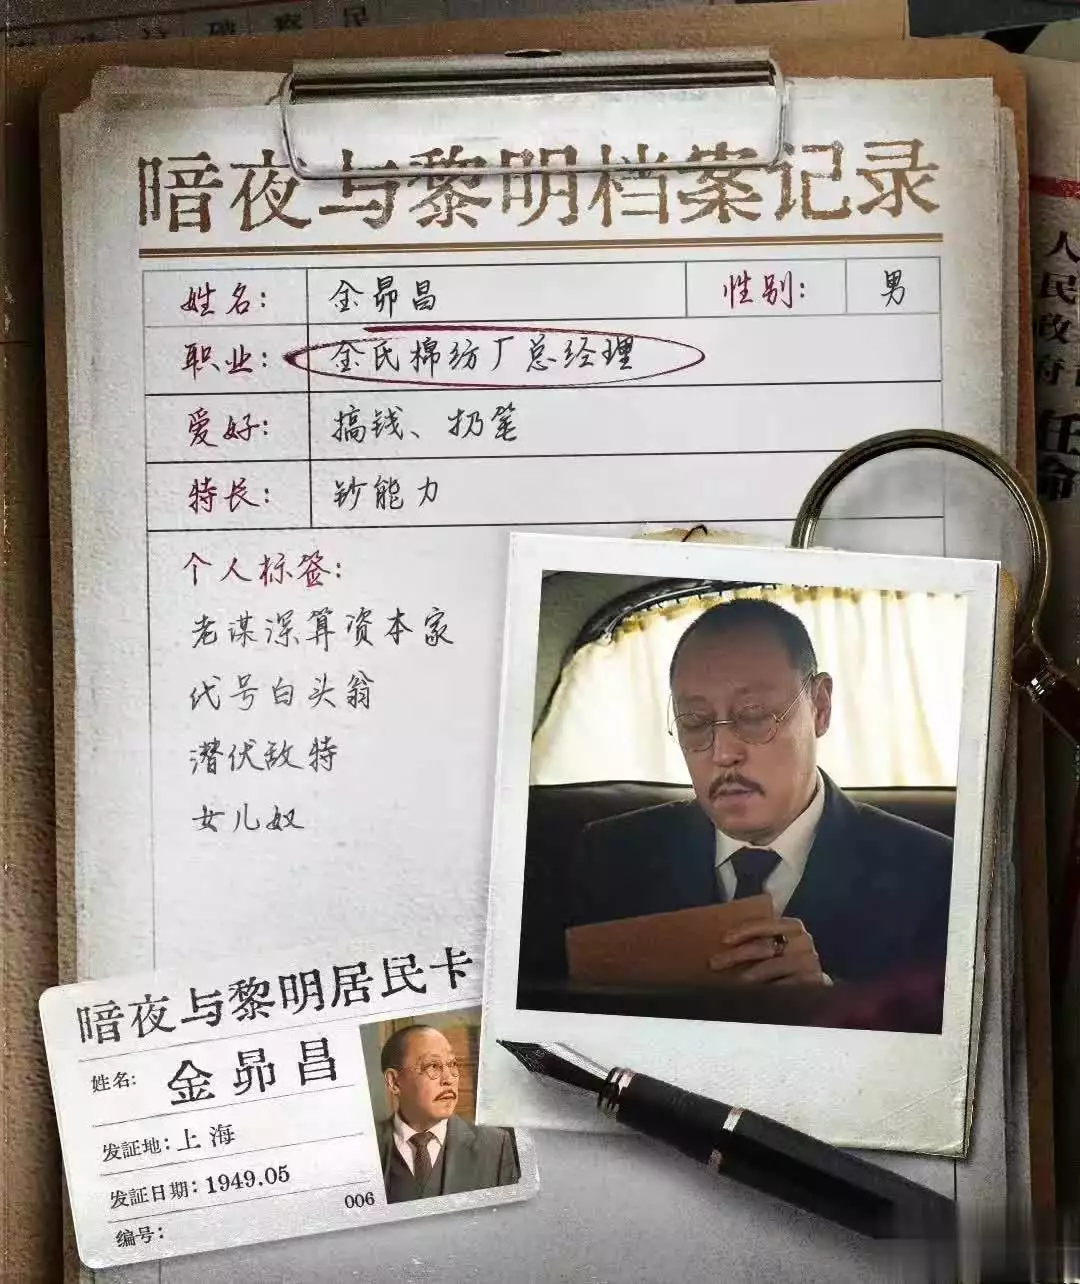 暗夜与黎明档案记录
姓名: 金昴昌 性别: 男
职业: 金氏棉纺厂总经理
爱好: 搞钱、扔笔
特长: 钞能力
个人标签:
老谋深算资本家
代号白头翁
潜伏敌特
女儿奴
暗夜与黎明居民卡
姓名: 金昴昌
发证地: 上海
发证日期: 1949.05
编号:
006
人民政府
任命